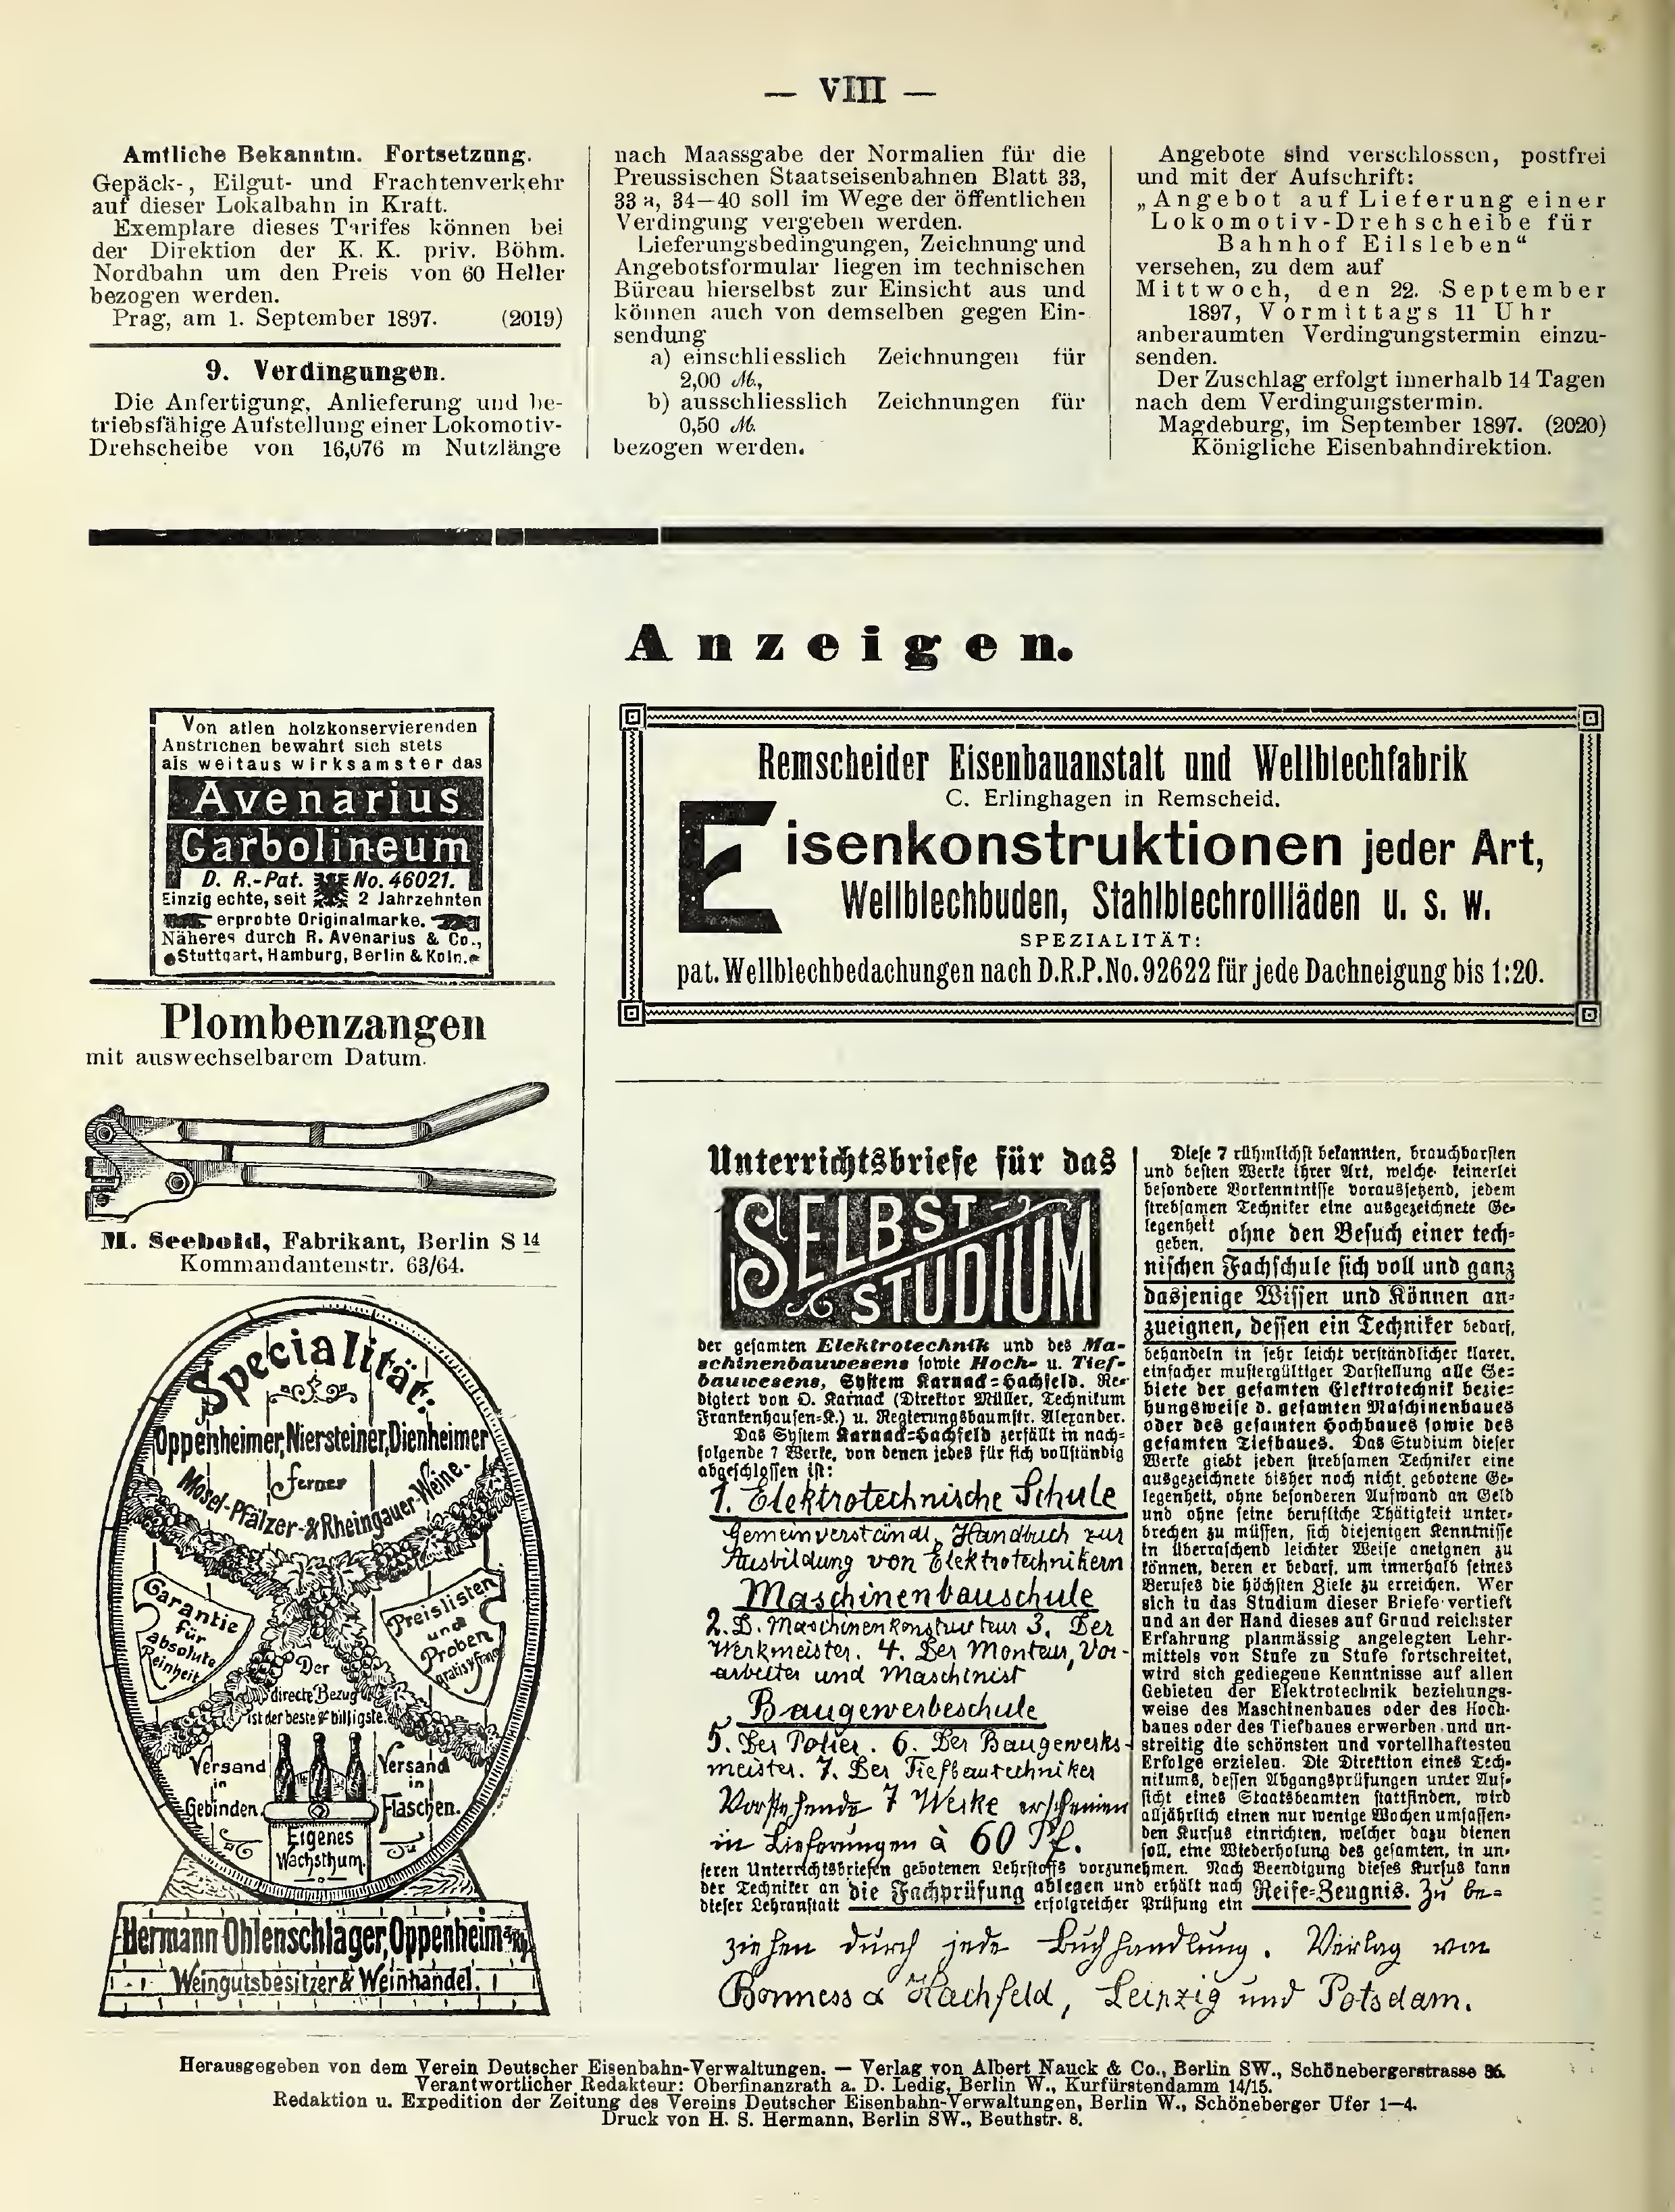 — VIII —
Amtliche Bekanntm. Fortsetzung.
Gepäck-, Eilgut- und Frachtenverkehr
auf dieser Lokalbahn in Kraft.
Exemplare dieses Tarifes können bei
der Direktion der K. K. priv. Böhm.
Nordbahn um den Preis von 60 Heller
bezogen werden.
Prag, am 1. September 1897. (2019)
9. Verdingungen.
Die Anfertigung, Anlieferung und be-
triebsfähige Aufstellung einer Lokomotiv-
Drehscheibe von 16,076 m Nutzlänge
nach Maassgabe der Normalien für die
Preussischen Staatseisenbahnen Blatt 33,
33 a, 34—40 soll im Wege der öffentlichen
Verdingung vergeben werden.
Lieferungsbedingungen, Zeichnung und
Angebotsformular liegen im technischen
Büreau hierselbst zur Einsicht aus und
können auch von demselben gegen Ein-
sendung
a) einschliesslich Zeichnungen für
2,00 ℳ,
b) ausschliesslich Zeichnungen für
0,50 ℳ.
bezogen werden.
Angebote sind verschlossen, postfrei
und mit der Aufschrift:
„Angebot auf Lieferung einer
Lokomotiv-Drehscheibe für
Bahnhof Eilsleben“
versehen, zu dem auf
Mittwoch, den 22. September
1897, Vormittags 11 Uhr
anberaumten Verdingungstermin einzu-
senden.
Der Zuschlag erfolgt innerhalb 14 Tagen
nach dem Verdingungstermin.
Magdeburg, im September 1897. (2020)
Königliche Eisenbahndirektion.
Anzeigen.
Von allen holzkonservierenden
Anstrichen bewährt sich stets
als weitaus wirksamster das
Avenarius
Carbolineum
D. R.-Pat. No. 46021.
Einzig echte, seit 2 Jahrzehnten
erprobte Originalmarke.
Näheres durch R. Avenarius & Co.,
Stuttgart, Hamburg, Berlin & Köln.
Plombenzangen
mit auswechselbarem Datum.
M. Seebold, Fabrikant, Berlin S 14
Kommandantenstr. 63/64.
Specialität:
Oppenheimer, Niersteiner, Dienheimer
ferner
Mosel-Pfälzer- & Rheingauer-Weine.
Garantie
für
absolute
Reinheit
Preislisten
und
Proben
gratis & franco
Der
directe Bezug
ist der beste & billigste.
Versand
in
Gebinden.
Versand
in
Flaschen.
Eigenes
Wachsthum.
Hermann Ohlenschlager, Oppenheim a/Rh.
Weingutsbesitzer & Weinhandel.
Remscheider Eisenbauanstalt und Wellblechfabrik
C. Erlinghagen in Remscheid.
Eisenkonstruktionen jeder Art,
Wellblechbuden, Stahlblechrollläden u. s. w.
SPEZIALITÄT:
pat. Wellblechbedachungen nach D.R.P. No. 92622 für jede Dachneigung bis 1:20.
Unterrichtsbriefe für das
SELBST-
STUDIUM
der gesamten Elektrotechnik und des Ma-
schinenbauwesens sowie Hoch- u. Tief-
bauwesens, System Karnack-Hachfeld. Re-
digiert von O. Karnack (Direktor Müller, Technikum
Frankenhausen-K.) u. Regierungsbaumstr. Alexander.
Das System Karnack-Hachfeld zerfällt in nach-
folgende 7 Werke, von denen jedes für sich vollständig
abgeschlossen ist:
1. Elektrotechnische Schule
Gemeinverständl. Handbuch zur
Ausbildung von Elektrotechnikern
Maschinenbauschule
2. D. Maschinenkonstrukteur 3. Der
Werkmeister. 4. Der Monteur, Vor-
arbeiter und Maschinist
Baugewerbeschule
5. Der Polier. 6. Der Baugewerks-
meister. 7. Der Tiefbautechniker
Vorstehende 7 Werke erscheinen
in Lieferungen à 60 Pf.
Diese 7 rühmlichst bekannten, brauchbarsten
und besten Werke ihrer Art, welche keinerlei
besondere Vorkenntnisse voraussetzend, jedem
strebsamen Techniker eine ausgezeichnete Ge-
legenheit geben, ohne den Besuch einer tech-
nischen Fachschule sich voll und ganz
dasjenige Wissen und Können an-
zueignen, dessen ein Techniker bedarf,
behandeln in sehr leicht verständlicher klarer,
einfacher mustergültiger Darstellung alle Ge-
biete der gesamten Elektrotechnik bezie-
hungsweise d. gesamten Maschinenbaues
oder des gesamten Hochbaues sowie des
gesamten Tiefbaues. Das Studium dieser
Werke giebt jeden strebsamen Techniker eine
ausgezeichnete bisher noch nicht gebotene Ge-
legenheit, ohne besonderen Aufwand an Geld
und ohne seine berufliche Thätigkeit unter-
brechen zu müssen, sich diejenigen Kenntnisse
in überraschend leichter Weise aneignen zu
können, deren er bedarf, um innerhalb seines
Berufes die höchsten Ziele zu erreichen. Wer
sich in das Studium dieser Briefe vertieft
und an der Hand dieses auf Grund reichster
Erfahrung planmässig angelegten Lehr-
mittels von Stufe zu Stufe fortschreitet,
wird sich gediegene Kenntnisse auf allen
Gebieten der Elektrotechnik beziehungs-
weise des Maschinenbaues oder des Hoch-
baues oder des Tiefbaues erwerben und un-
streitig die schönsten und vorteilhaftesten
Erfolge erzielen. Die Direktion eines Tech-
nikums, dessen Abgangsprüfungen unter Auf-
sicht eines Staatsbeamten stattfinden, wird
alljährlich einen nur wenige Wochen umfassen-
den Kursus einrichten, welcher dazu dienen
soll, eine Wiederholung des gesamten, in un-
seren Unterrichtsbriefen gebotenen Lehrstoffs vorzunehmen. Nach Beendigung dieses Kursus kann
der Techniker an dieser Lehranstalt die Fachprüfung ablegen und erhält nach erfolgreicher Prüfung ein Reife-Zeugnis. Zu be-
ziehen durch jede Buchhandlung. Verlag von
Bonness & Hachfeld, Leipzig und Potsdam.
Herausgegeben von dem Verein Deutscher Eisenbahn-Verwaltungen. — Verlag von Albert Nauck & Co., Berlin SW., Schönebergerstrasse 36.
Verantwortlicher Redakteur: Oberfinanzrath a. D. Ledig, Berlin W., Kurfürstendamm 14/15.
Redaktion u. Expedition der Zeitung des Vereins Deutscher Eisenbahn-Verwaltungen, Berlin W., Schöneberger Ufer 1—4.
Druck von H. S. Hermann, Berlin SW., Beuthstr. 8.